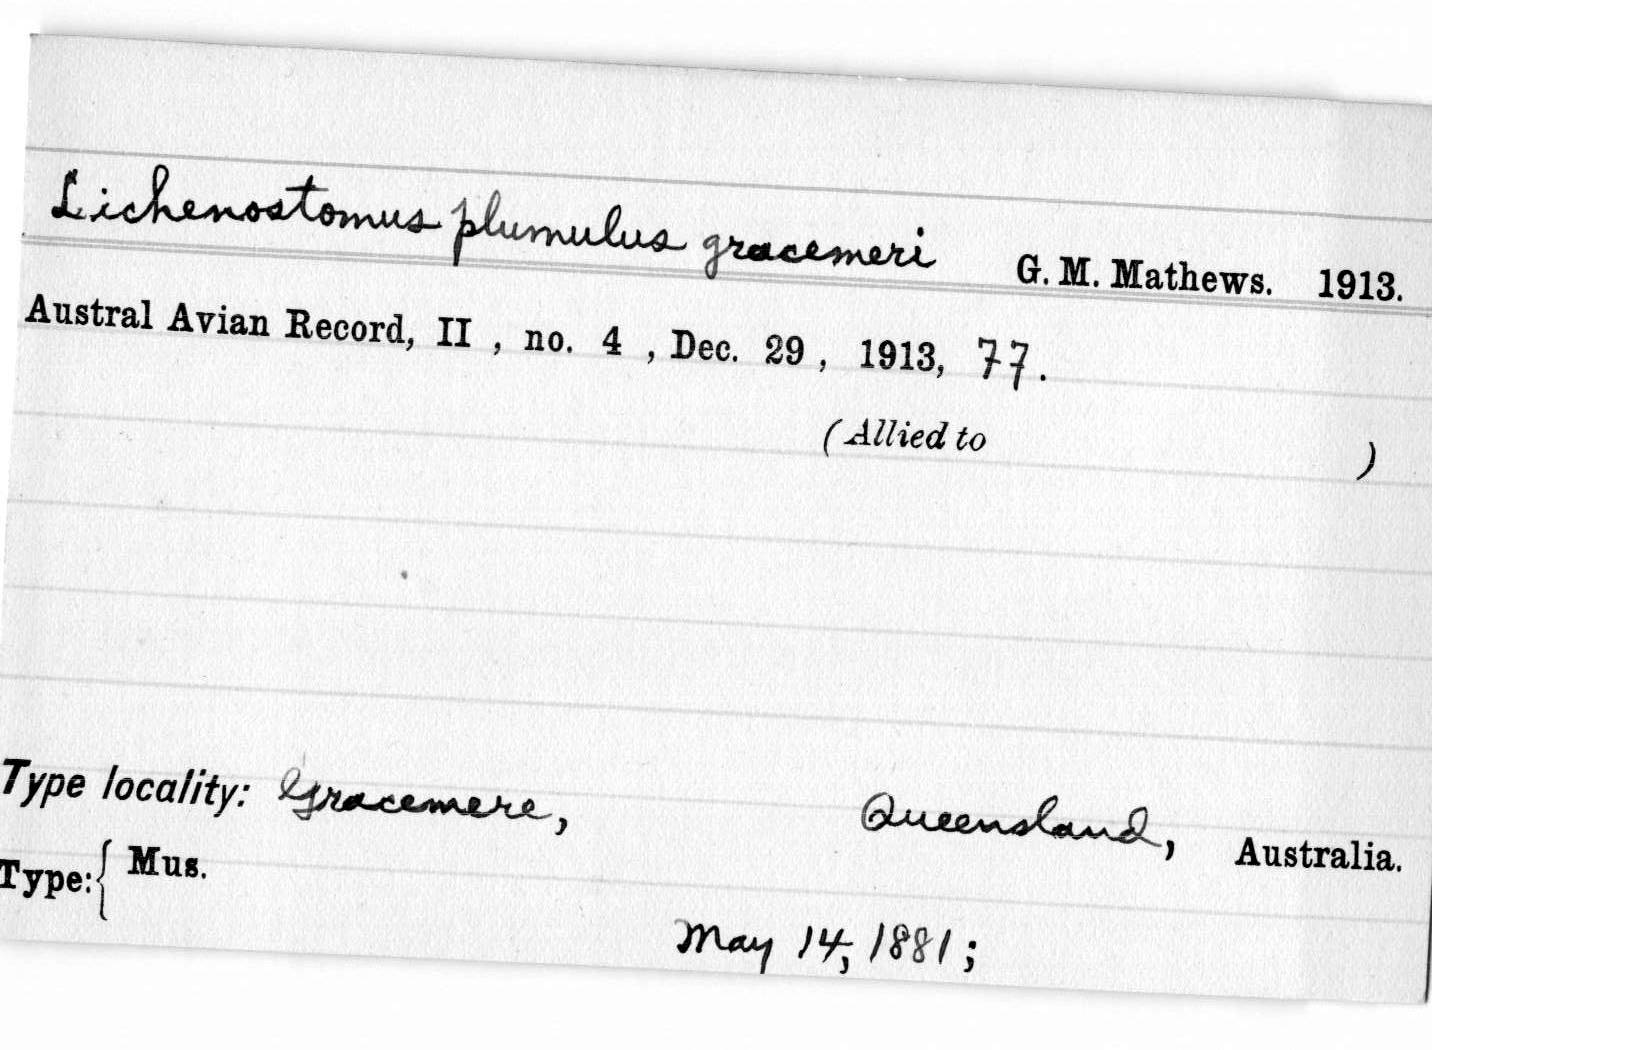 Lichenostomus plumulus gracemeri G. M. Mathews. 1913.
Austral Avian Record, II , no. 4 , Dec. 29 , 1913, 77.
(Allied to )
Type locality: Gracemere, Queensland, Australia.
Type: { Mus.
May 14, 1881;